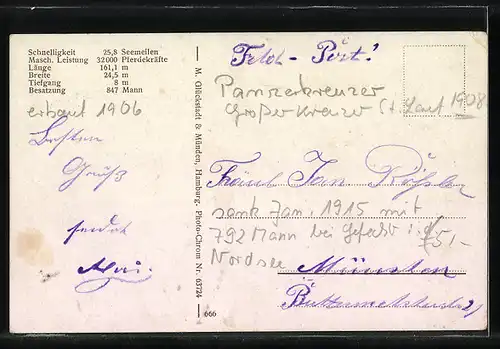 Schnelligkeit 25,8 Seemeilen
Masch. Leistung 32000 Pferdekräfte
Länge 161,1 m
Breite 24,5 m
Tiefgang 8 m
Besatzung 847 Mann
erbaut 1906
Besten
Gruß
sendet
M. Glückstadt & Münden, Hamburg. Photo-Chrom Nr. 63724
666
Feld-Post!
Panzerkreuzer
Großer Kreuzer 1908
Rößler
sank Jan. 1915 mit
792 Mann bei Gefecht i. d.
Nordsee
75,-
München